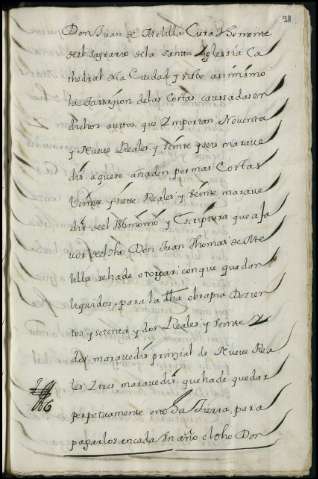 28
Don Juan de Astilla Cura Theniente
del Sagrario de la Santa Yglesia Ca
thedral de la Ciudad y hubo asimismo
la tassasion de las Costas causadas en
dichos autos que Ymportan Noventa
y Nueve Reales y Veinte y seis marave
dis a que se añaden por mas Costas
Veinte y siete Reales y Veinte marave
dis del Abono y Escriptura que a fa
vor del dho Don Juan Thomas de As
tilla se ha de otorgar con que quedan
liquidos para la dha obra pia Docien
tos y setenta y dos Reales y Veinte y
dos maravedis prinzipal de Nueve Rea
les y tres maravedis que ha de quedar
perpetuamente en su fuerza para
pagarlos en cada Un año el dho Don